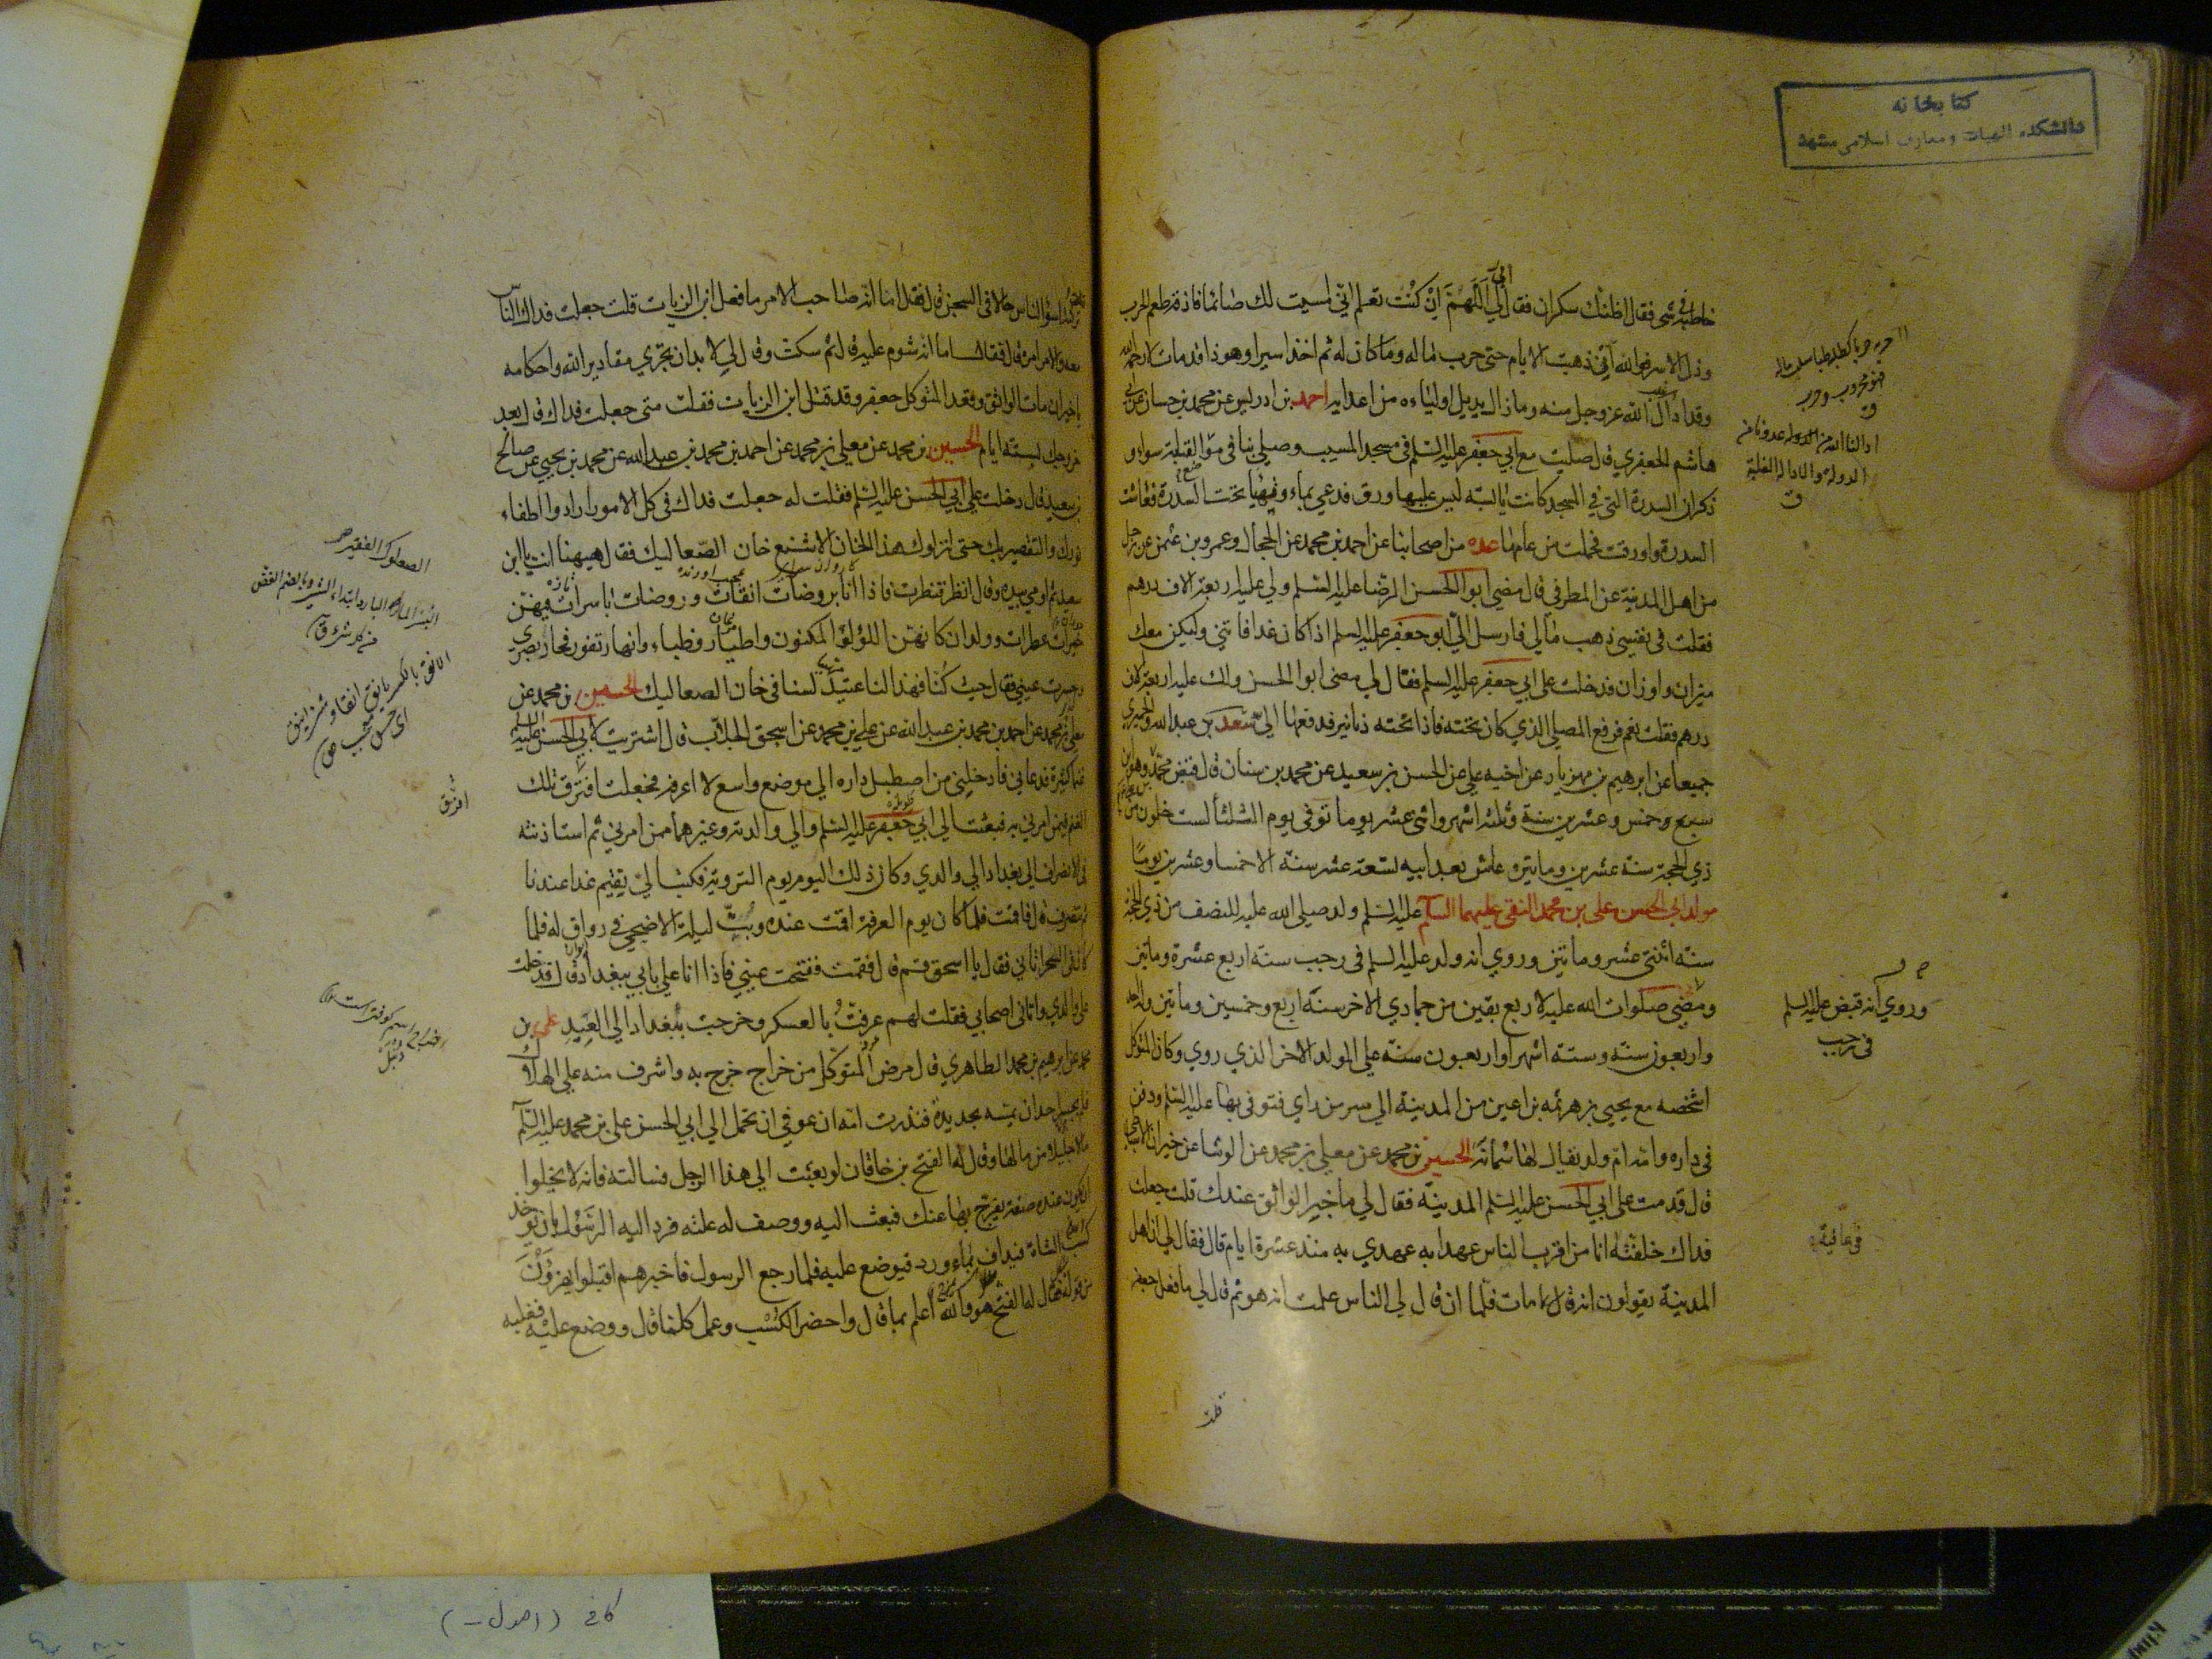 كتابخانه
دانشكده الهيات و معارف اسلامى مشهد
خاطبه في شئ فقال اظنك سكران فقال ابي اللهم ان كنت تعلم اني امسيت لك صائما فاذقه طعم الحرب
وذل الاسر فوالله ان ذهبت الايام حتى حرب ماله وما كان له ثم اخذ اسيرا وهو ذا قد مات لا رحمه الله
وقد ادال الله عز وجل منه وما زال يديل اولياءه من اعدائه احمد بن ادريس عن محمد بن حسان عن ابي
هاشم الجعفري قال صليت مع ابي جعفر عليه السلم في مسجد المسيب وصلي بنا في موضع القبلة سواء و
ذكر ان السدرة التي في المسجد كانت يابسة ليس عليها ورق فدعي بماء وتهيأ تحت السدرة فعاشت
السدرة واورقت وحملت من عامها عدة من اصحابنا عن احمد بن محمد عن الحجال وعمرو بن عثمن عن رجل
من اهل المدينة عن المطرفي قال مضي ابو الحسن الرضا عليه السلم ولي عليه اربعة الاف درهم
فقلت في نفسي ذهب مالي فارسل الي ابو جعفر عليه السلم اذا كان غدا فاتني وليكن معك
ميزان واوزان فدخلت على ابي جعفر عليه السلم فقال لي مضى ابو الحسن ولك عليه اربعة الاف
درهم فقلت نعم فرفع المصلي الذي كان تحته فاذا تحته دنانير فدفعها الي سعد بن عبد الله والحميري
جميعا عن ابرهيم بن مهزيار عن اخيه علي عن الحسن بن سعيد عن محمد بن سنان قال قبض محمد وهو ابن
خمس وعشرين سنة وثلثة اشهر واثنى عشر يوما توفي يوم الثلثا لست خلون من
ذي الحجة سنة عشرين ومايتين عاش بعد ابيه تسعة عشر سنة الا خمسا وعشرين يوما
مولد ابي الحسن علي بن محمد النقي عليهما السلم ولد صلي الله عليه للنصف من ذي الحجة
سنة اثنتي عشر ومايتين وروي انه ولد عليه السلم في رجب سنة اربع عشرة ومايتين
ومضي صلوات الله عليه لاربع بقين من جمادي الاخر سنة اربع وخمسين ومايتين وله احد
واربعون سنة وستة اشهر او اربعون سنة علي المولد الاخر الذي روي وكان المتوكل
اشخصه مع يحيي بن هرثمه بن اعين من المدينة الي سر من راي فتوفي بها عليه السلم ودفن
في داره وامه ام ولد يقال لها سمانة الحسين بن محمد عن معلي بن محمد عن الوشا عن خيران الاسباطي
قال قدمت علي ابي الحسن عليه السلم المدينة فقال لي ما خبر الواثق عندك قلت جعلت
فداك خلفته انا من اقرب الناس عهدا به عهدي به منذ عشرة ايام قال فقال لي ان اهل
المدينة يقولون انه قال مات فلما ان قال لي الناس علمت انه هو ثم قال لي ما فعل جعفر
وروي انه قبض عليه السلم
في رجب
في عافية
قلت
تركته اسوء الناس حالا في السجن قال فقال اما انه صاحب الامر ما فعل ابن الزيات قلت جعلت فداك الناس
معه والامر امره قال فقال اما انه شوم عليه قال ثم سكت وقال لي لا بد ان تجري مقادير الله واحكامه
يا خيران مات الواثق وقعد المتوكل جعفر وقد قتل ابن الزيات فقلت متى جعلت فداك قال بعد
خروجك بستة ايام الحسين بن محمد عن معلي بن محمد عن احمد بن محمد بن عبد الله عن محمد بن يحيي عن صالح
بن سعيد قال دخلت علي ابي الحسن عليه السلم فقلت له جعلت فداك في كل الامور ارادوا اطفاء
نورك والتقصير بك حتى انزلوك هذا الخان الاشنع خان الصعاليك فقال هيهنا انت يا ابن
سعيد ثم اومي بيده وقال انظر فنظرت فاذا انا بروضات انقات وروضات باسرات فيهن
خيرات عطرات وولدان كانهن اللؤلؤ المكنون واطيار وظباء وانهار تفور فحار بصري
وحسرت عيني فقال حيث كنا فهذا لنا عتيد لسنا في خان الصعاليك الحسين بن محمد عن
معلي بن محمد عن احمد بن محمد بن عبد الله عن علي بن محمد عن اسحق الجلاب قال اشتريت لابي الحسن عليه السلم
غنما كثيرة فدعاني فادخلني من اصطبل داره الي موضع واسع لا اعرفه فجعلت افرق تلك
الغنم فيمن امرني به فبعثت الي ابي جعفر عليه السلم والي والدته وغيرهما ممن امرني ثم استاذنته
في الانصراف الي بغداد الي والدي وكان ذلك اليوم يوم التروية فكتب الي تقيم غدا عندنا
ثم تنصرف قال فاقمت فلما كان يوم العرفة اقمت عنده وبت ليلة الاضحي في رواق له فلما
كان في السحر اتاني فقال يا اسحق قم قال فقمت ففتحت عيني فاذا انا علي بابي ببغداد قال فدخلت
علي والدي واتاني اصحابي فقلت لهم عرفت بالعسكر وخرجت ببغداد الي العيد علي بن
محمد عن ابرهيم بن محمد الطاهري قال مرض المتوكل من خراج خرج به واشرف منه علي الهلاك
فلم يجسر احد ان يمسه بحديدة فنذرت امه ان عوفي ان تحمل الي ابي الحسن علي بن محمد عليه السلم
مالا جليلا من مالها وقال له الفتح بن خاقان لو بعثت الي هذا الرجل فسالته فانه لا يخلوا
ان يكون عنده صفة يفرج بها عنك فبعث اليه ووصف له علته فرد اليه الرسول بان يؤخذ
كسب الشاة فيداف بماء ورد فيوضع عليه فلما رجع الرسول فاخبرهم اقبلوا يهزؤن
من قوله فقال له الفتح هو والله اعلم بما قال واحضر الكسب وعمل كما قال ووضع عليه فغلبه
الصعلوك الفقير
افرق
كافى (اصول -)